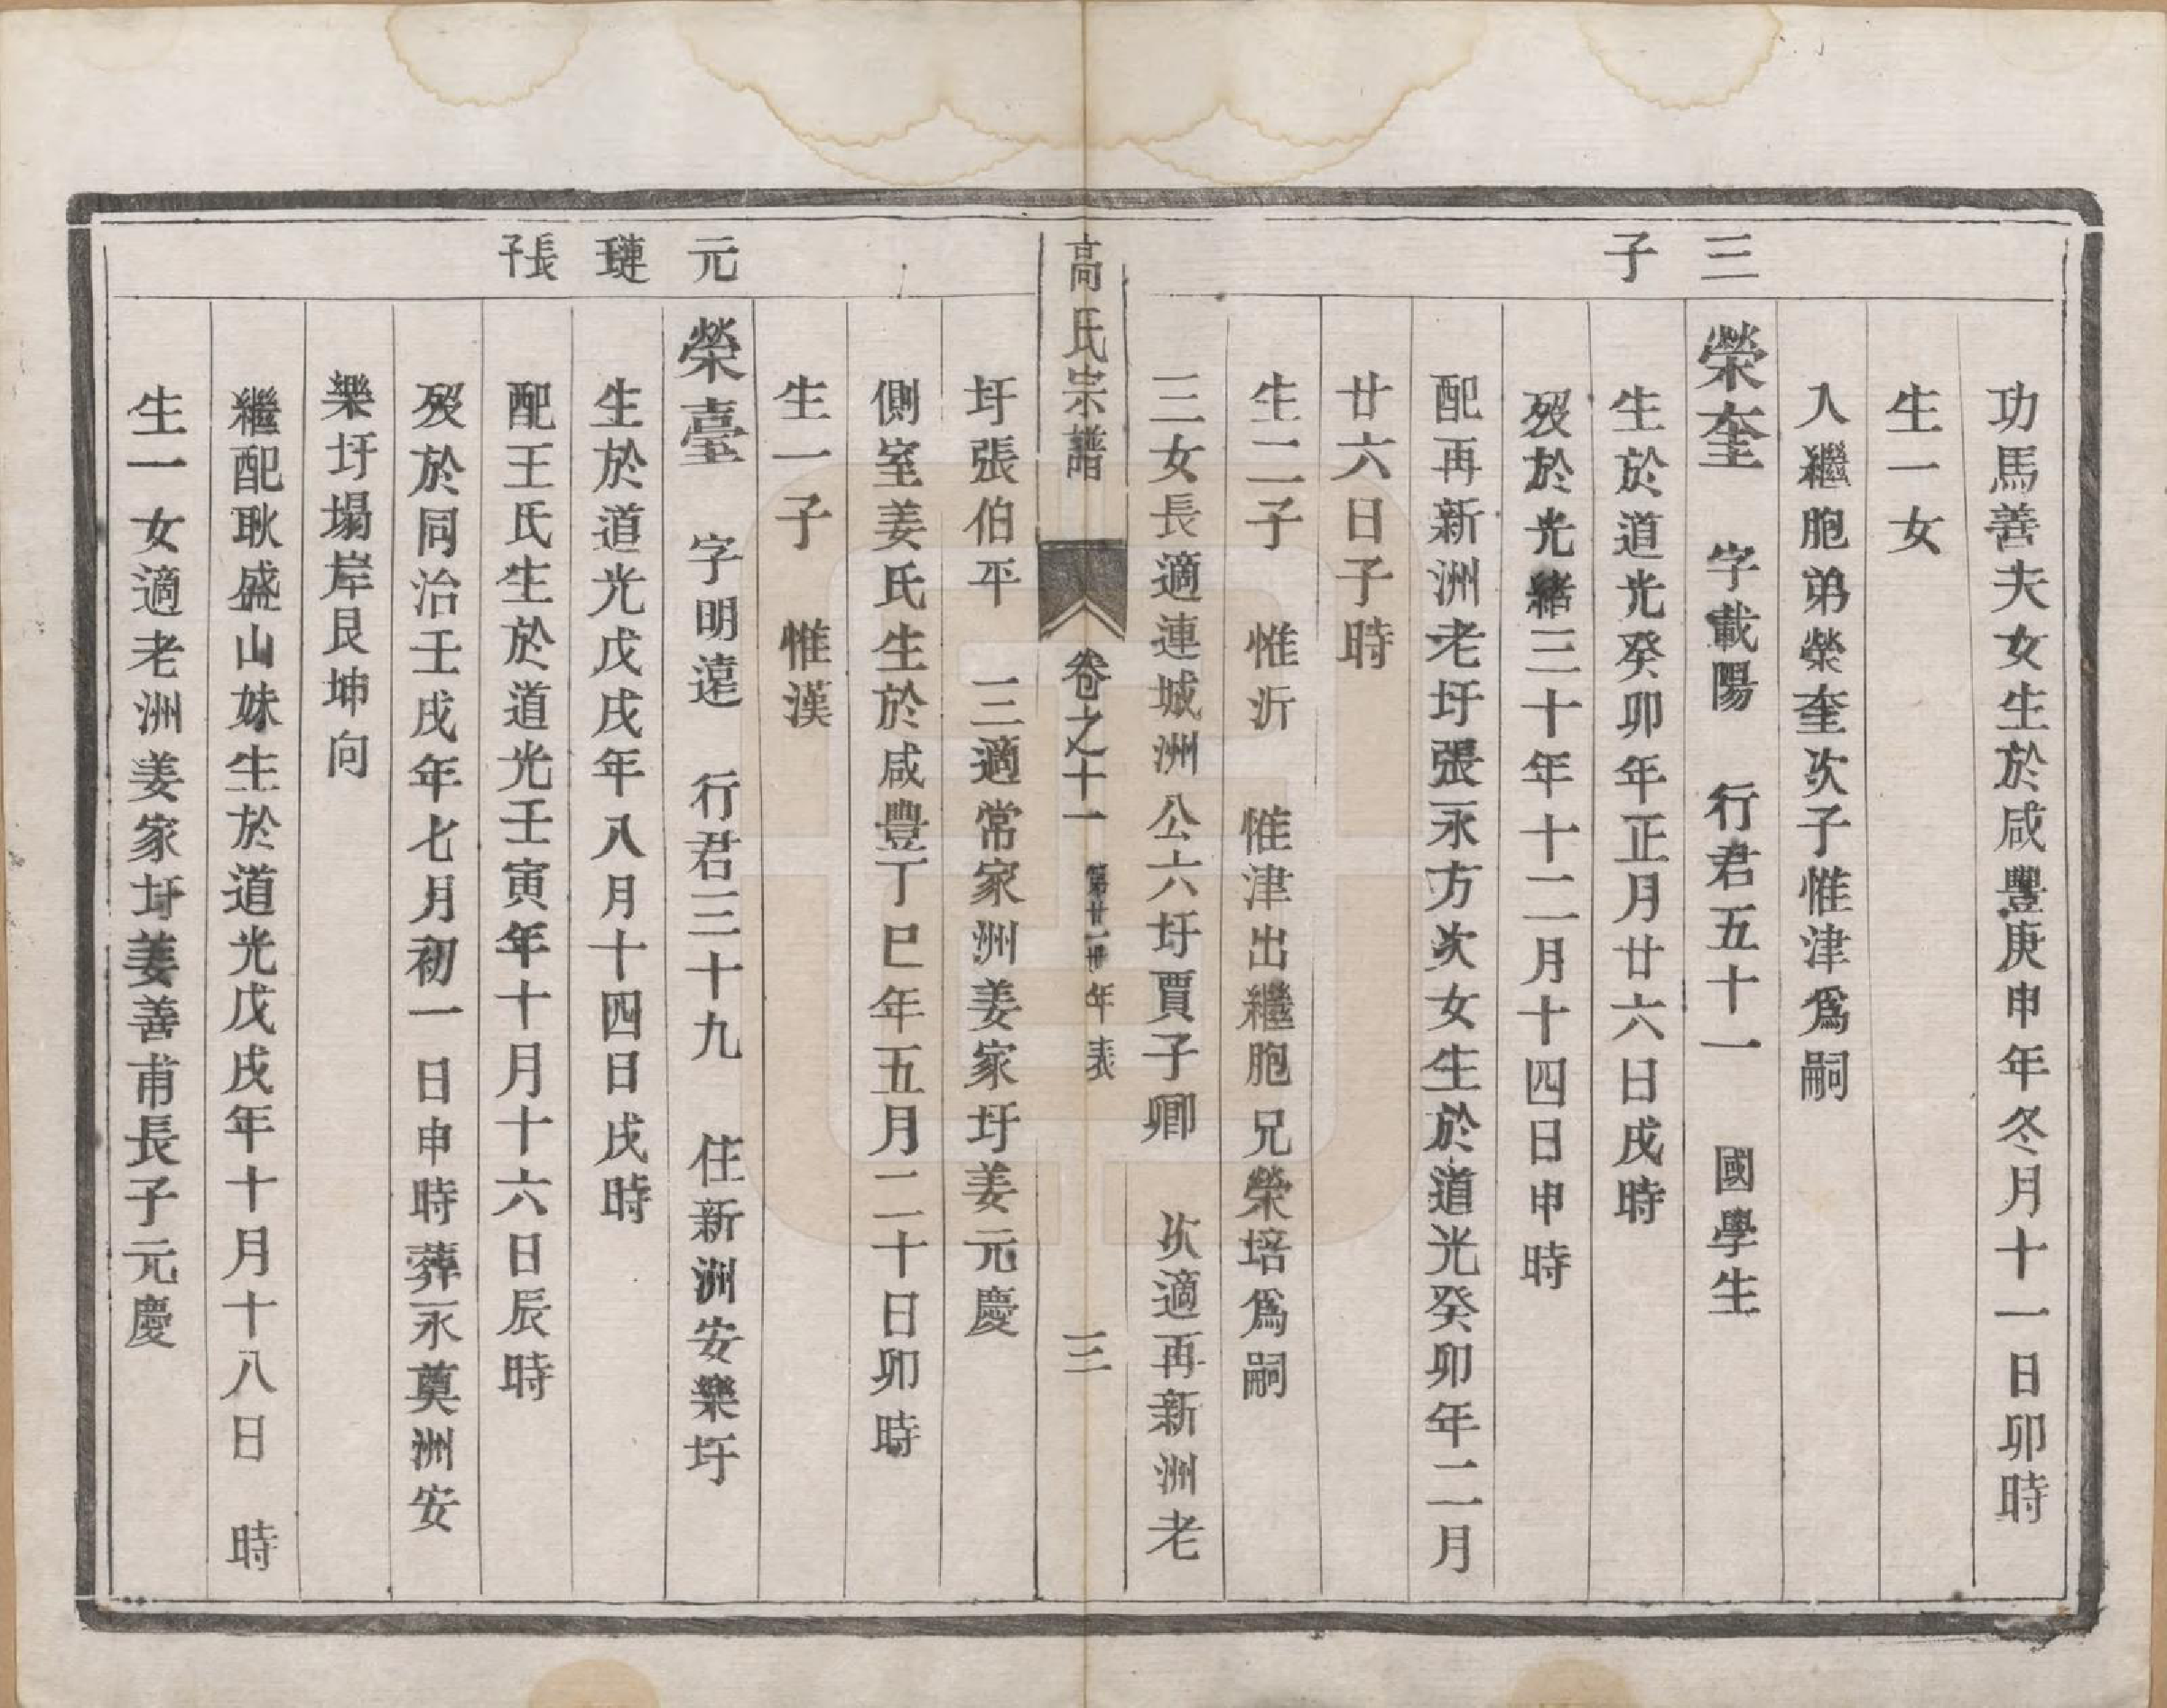 功馬善夫女生於咸豐庚申年冬月十一日卯時
生一女
入繼胞弟榮奎次子惟津爲嗣
三
榮奎 字載陽 行君五十一 國學生
子
生於道光癸卯年正月廿六日戌時
歿於光緒三十年十二月十四日申時
配再新洲老圩張永方次女生於道光癸卯年二月
廿六日子時
生二子 惟沂 惟津出繼胞兄榮培爲嗣
三女長適連城洲公六圩賈子卿 次適再新洲老
高氏宗譜 卷之十一 第廿一世年表 三
圩張伯平 三適常家洲姜家圩姜元慶
側室姜氏生於咸豐丁巳年五月二十日卯時
生一子 惟漢
元
榮臺 字明遠 行君三十九 住新洲安樂圩
璉
生於道光戊戌年八月十四日戌時
長子
配王氏生於道光壬寅年十月十六日辰時
歿於同治壬戌年七月初一日申時葬永奠洲安
樂圩塌岸艮坤向
繼配耿盛山妹生於道光戊戌年十月十八日 時
生一女適老洲姜家圩姜善甫長子元慶